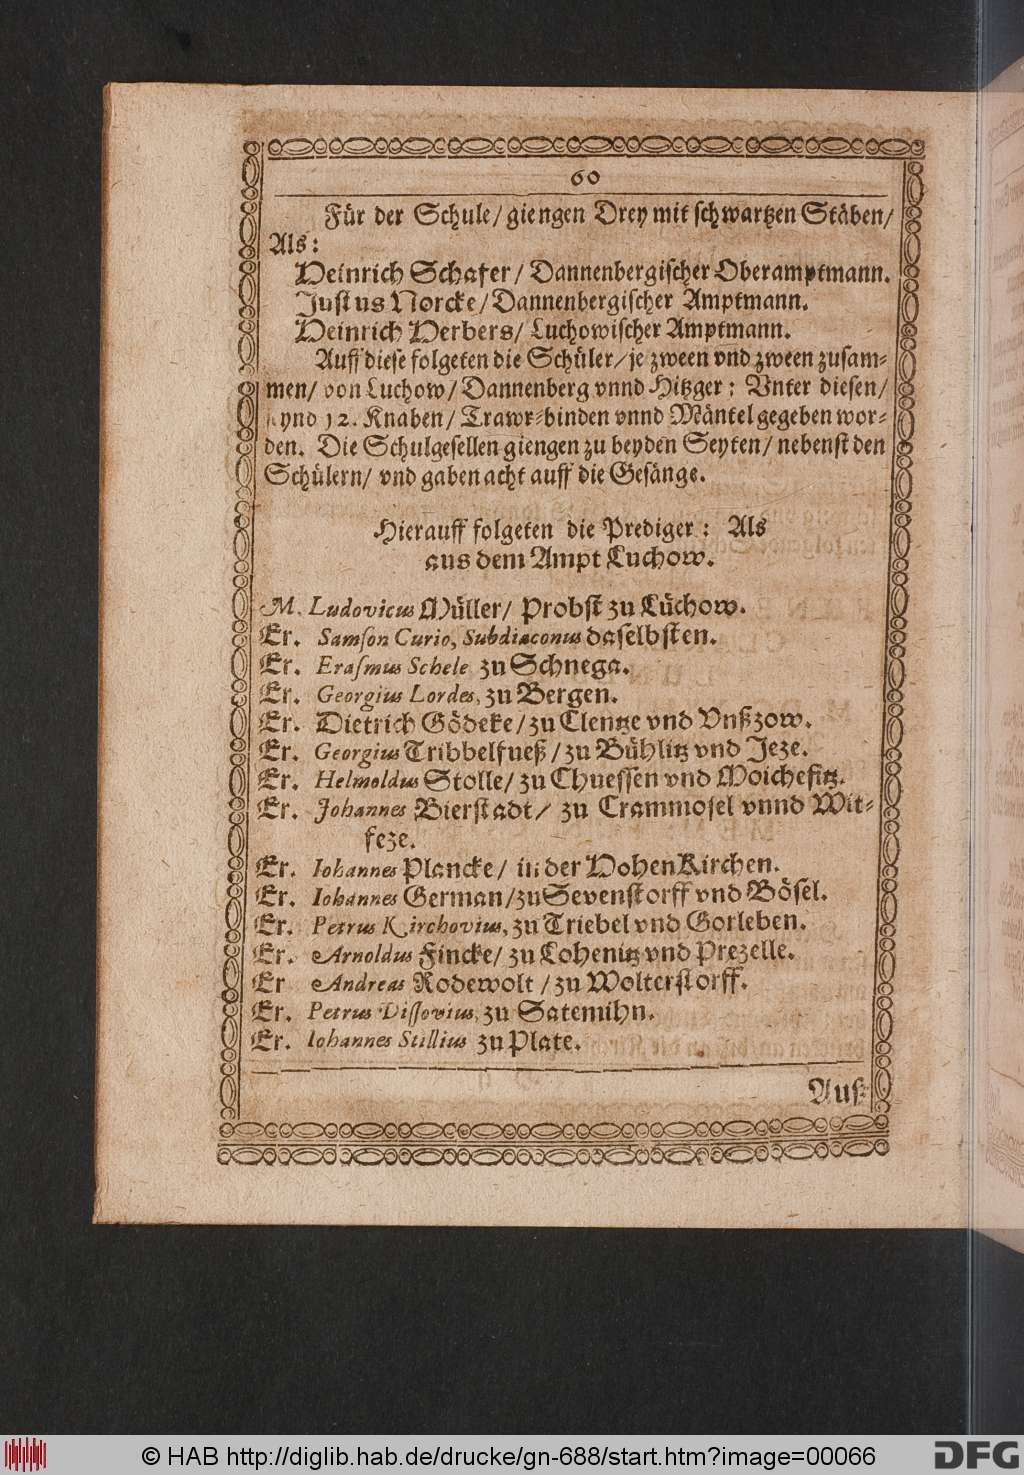 60
Für der Schule/ giengen Drey mit schwartzen Stäben/
Als:
Heinrich Schafer/ Dannenbergischer Oberamptmann.
Justus Norcke/ Dannenbergischer Amptmann.
Heinrich Herbers/ Luchowischer Amptmann.
Auff diese folgeten die Schüler/ je zween vnd zween zusam-
men/ von Luchow/ Dannenberg vnnd Hitzger: Vnter diesen/
synd 12. Knaben/ Trawr-binden vnnd Mäntel gegeben wor-
den. Die Schulgesellen giengen zu beyden Seyten/ nebenst den
Schülern/ vnd gaben acht auff die Gesänge.
Hierauff folgeten die Prediger: Als
aus dem Ampt Luchow.
M. Ludovicus Müller/ Probst zu Lüchow.
Er. Samson Curio, Subdiaconus daselbsten.
Er. Erasmus Schele zu Schnega.
Er. Georgius Lordes, zu Bergen.
Er. Dietrich Gödeke/ zu Clentze vnd Vnßzow.
Er. Georgius Tribbelfueß/ zu Bühlitz vnd Jeze.
Er. Helmoldus Stolle/ zu Chuessen vnd Woichefitz.
Er. Johannes Bierstadt/ zu Crammosel vnnd Wit-
feze.
Er. Iohannes Plancke/ in der Hohen Kirchen.
Er. Iohannes German/ zu Sevenstorff vnd Bösel.
Er. Petrus Kirchovius, zu Triebel vnd Gorleben.
Er. Arnoldus Fincke/ zu Lohenitz vnd Prezelle.
Er Andreas Rodewolt/ zu Wolterstorff.
Er. Petrus Dissovius, zu Satemihn.
Er. Iohannes Stillius zu Plate.
Aus-
© HAB http://diglib.hab.de/drucke/gn-688/start.htm?image=00066
DFG